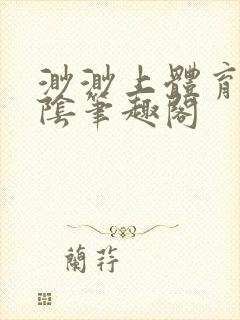 渺渺上體育
陰筆趣閣
蘭荐